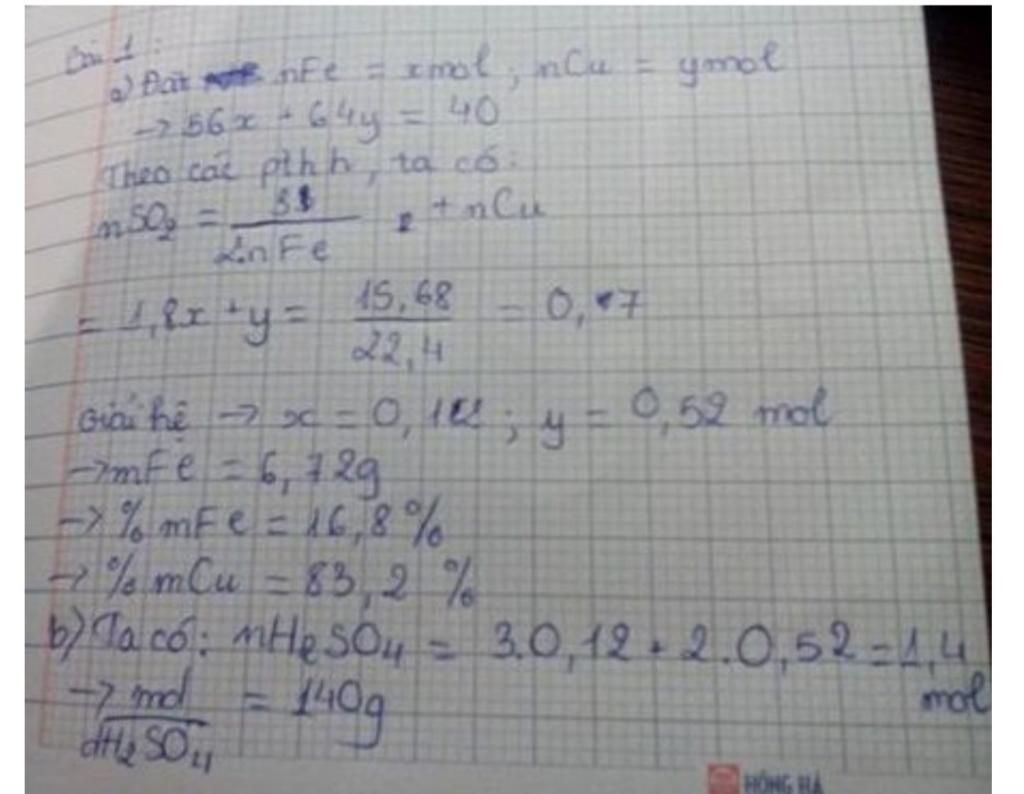 Bài 1:
a) Đặt nFe = xmol, nCu = ymol
→ 56x + 64y = 40
Theo các pthh, ta có:
nSO2 = 3 / 2nFe + nCu
= 1,8x + y = 15,68 / 22,4 = 0,7
Giải hệ → x = 0,12; y = 0,52 mol
→ mFe = 6,72g
→ % mFe = 16,8%
→ % mCu = 83,2 %
b) Ta có: nH2SO4 = 3.0,12 + 2.0,52 = 1,4 mol
→ md / dH2SO4 = 140g
HỒNG HÀ